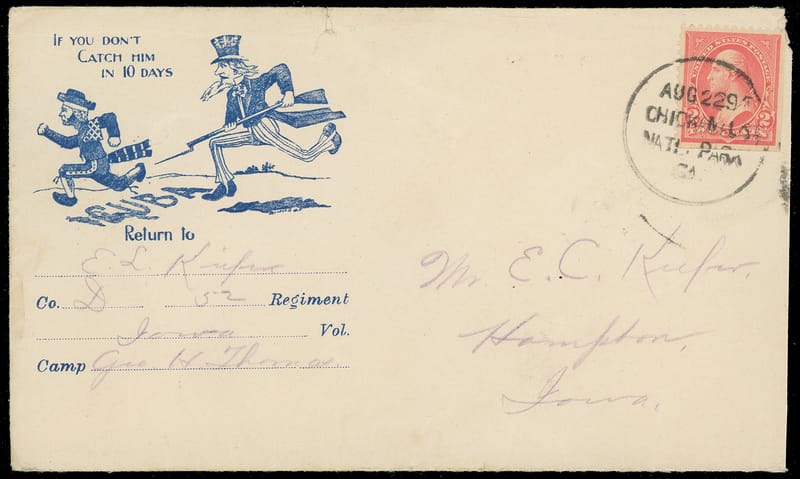 IF YOU DON'T
CATCH HIM
IN 10 DAYS
CUBA
Return to
E L Kiefer
Co. D 52 Regiment
Iowa Vol.
Camp Geo H Thomas
UNITED STATES POSTAGE
2 2
AUG 22 9
CHICKAMAUGA
NATL. PARK
GA.
Mr. E. C. Kiefer,
Hampton,
Iowa.